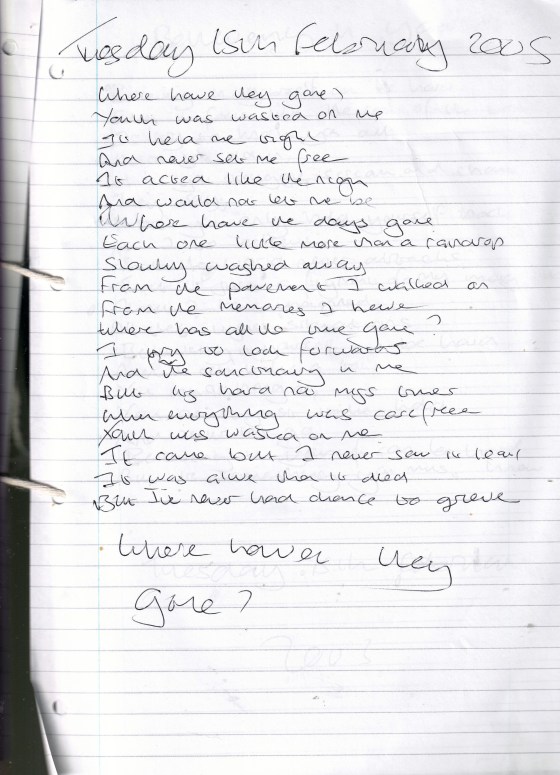 Tuesday 15th February 2005
Where have they gone?
Youth was wasted on me
It held me tight
And never set me free
It acted like the
And would not let me be
Where have the days gone
Each one little more than a raindrop
Slowly washed away
From the pavement I walked on
From the memories I have
Where has all the time gone?
I try to look forwards
And the sanctuary in me
But its hard not miss times
When everything was carefreee
Youth was wasted on me
It came but I never saw it leave
It was alive than it died
But I've never had chance to grieve
Where have they
gone?